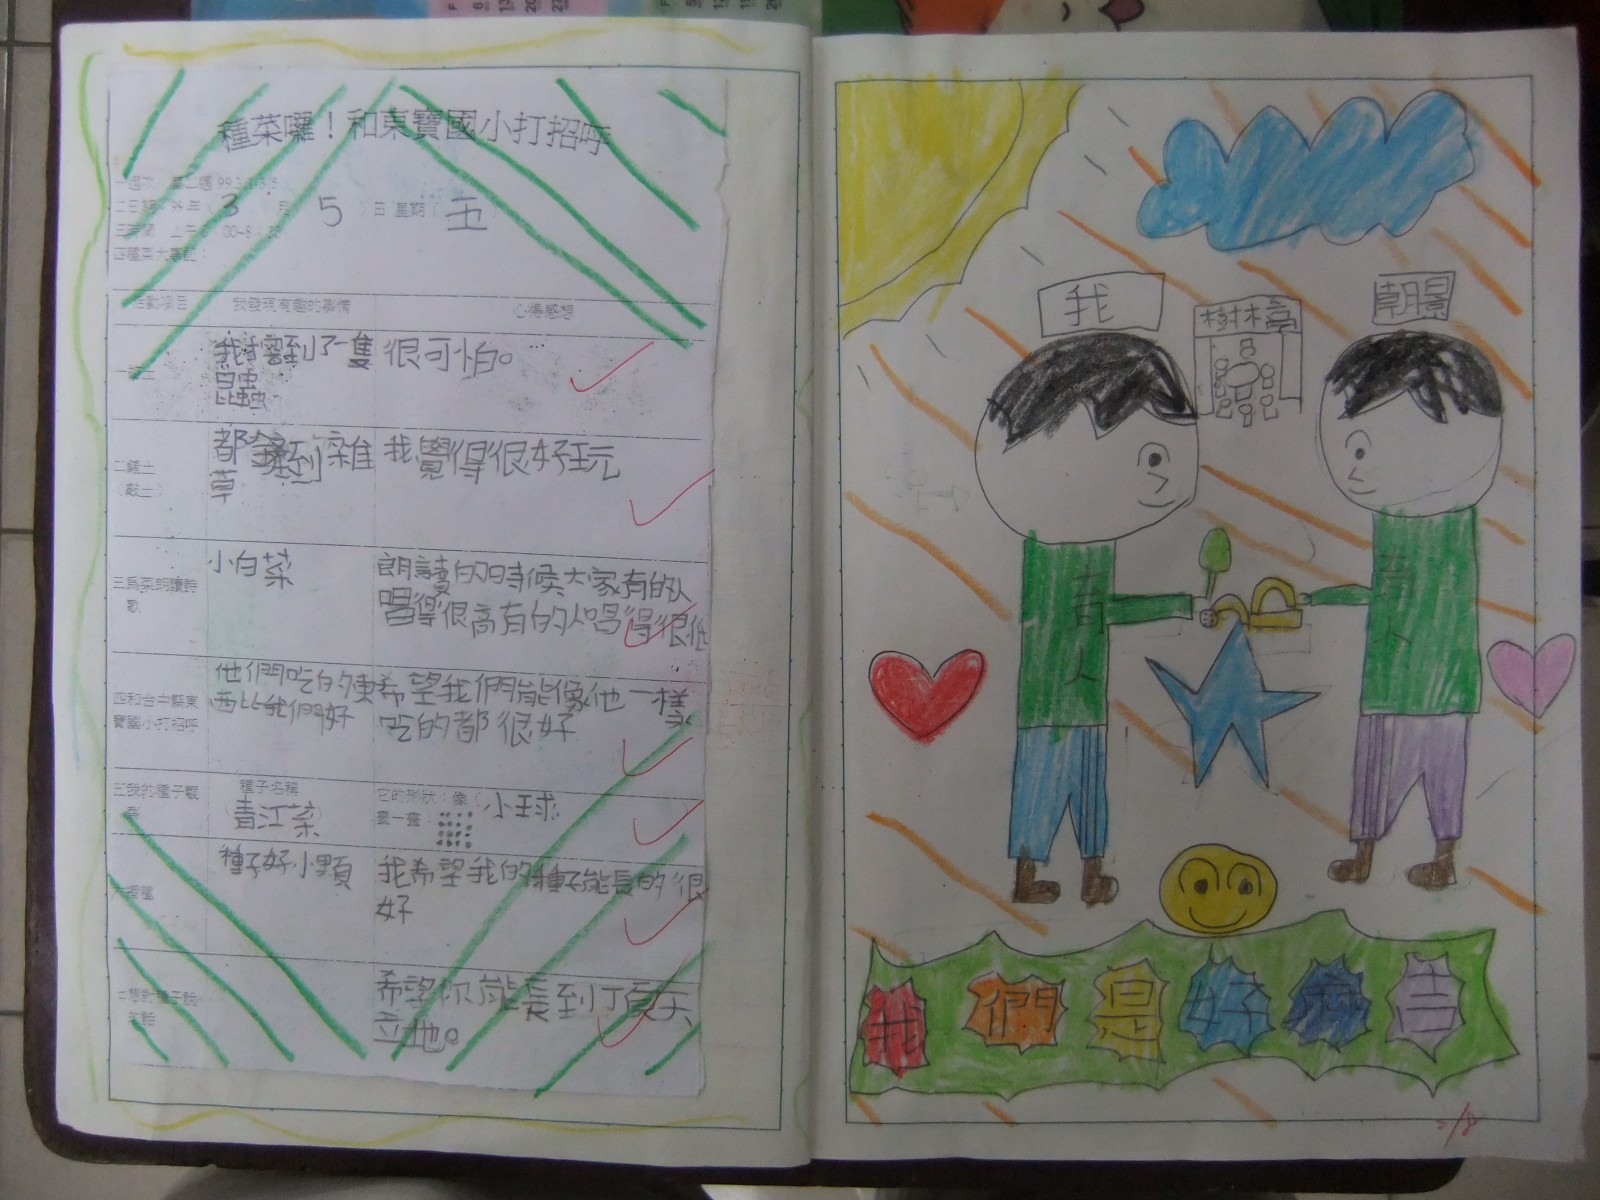 種菜囉！和東寶國小打招呼
一週次：第二週 99.3.1-3.5
二日期：99年（3）月（5）日 星期（五）
四種菜大事記：
活動項目 我發現有趣的事情 心得感想
我挖到了一隻
昆蟲
很可怕。
二鏟土
（鬆土）
都鏟到雜
草
我覺得很好玩
三為菜朗讀詩
歌
小白菜
朗讀的時候大家有的人
唱得很高有的人唱得很低
四和台中縣東
寶國小打招呼
他們吃的東
西比我們好
希望我們能像他一樣
吃的都很好
五我的種子觀
察
種子名稱
（青江菜）
它的形狀：像（小球
畫一畫：
六播種
種子好小顆
我希望我的種子能長的很
好
七想對種子說
的話
希望你能長到頂天
立地。
我
樹棺
朝陽
育人
育人
我們是好麻吉